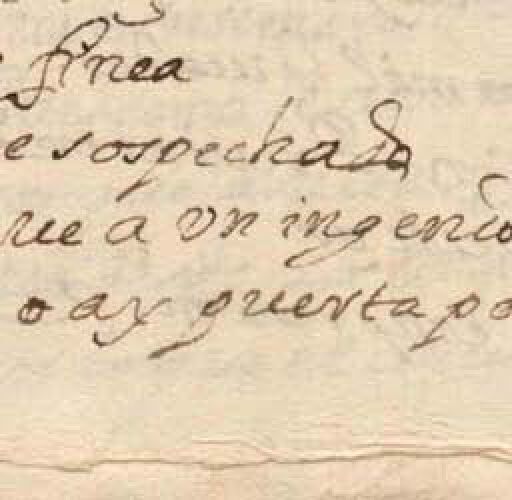 finea
e sospechado
rve a vn ingenio
o ay puerta po